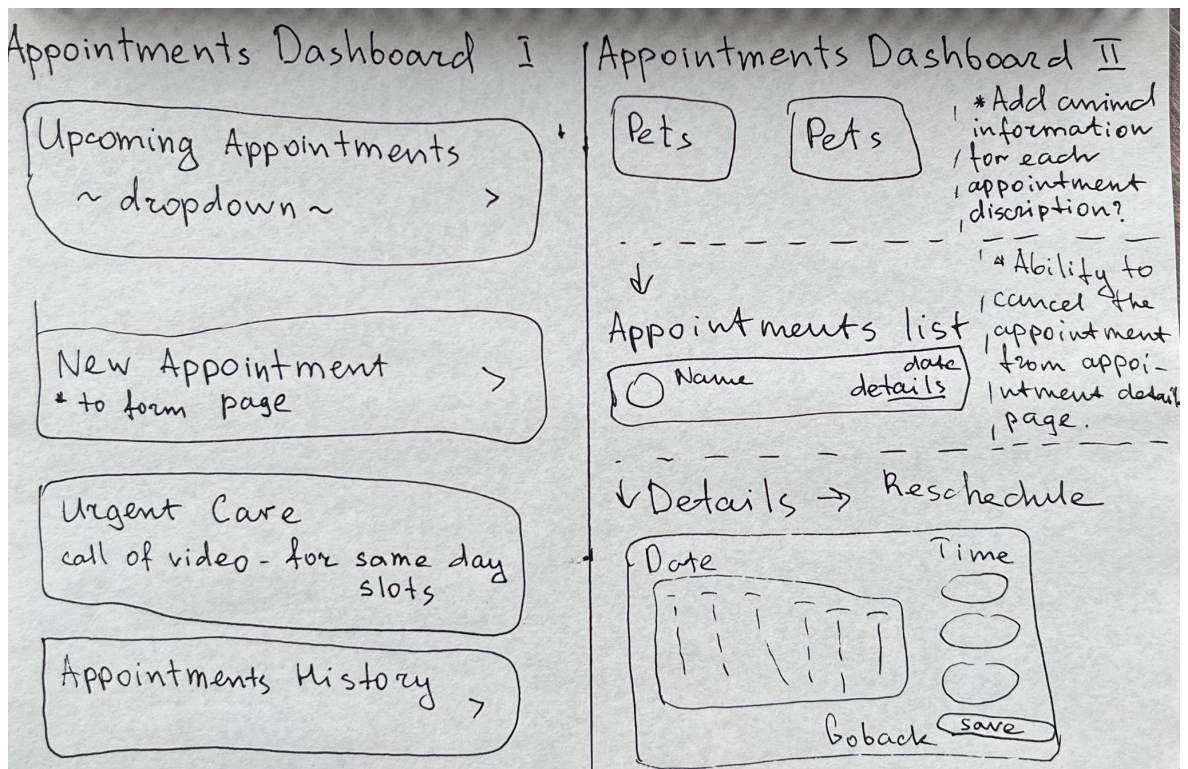 Appointments Dashboard I
Upcoming Appointments
~ dropdown ~ >
New Appointment >
* to form page
Urgent Care
call of video - for same day
slots
Appointments History >
Appointments Dashboard II
Pets
Pets
* Add animal
information
for each
appointment
discription?
* Ability to
cancel the
appointment
from appoi-
ntment detail
page.
↓
Appointments list
Name
date
details
↓ Details → Reschedule
Date
Time
Goback
save